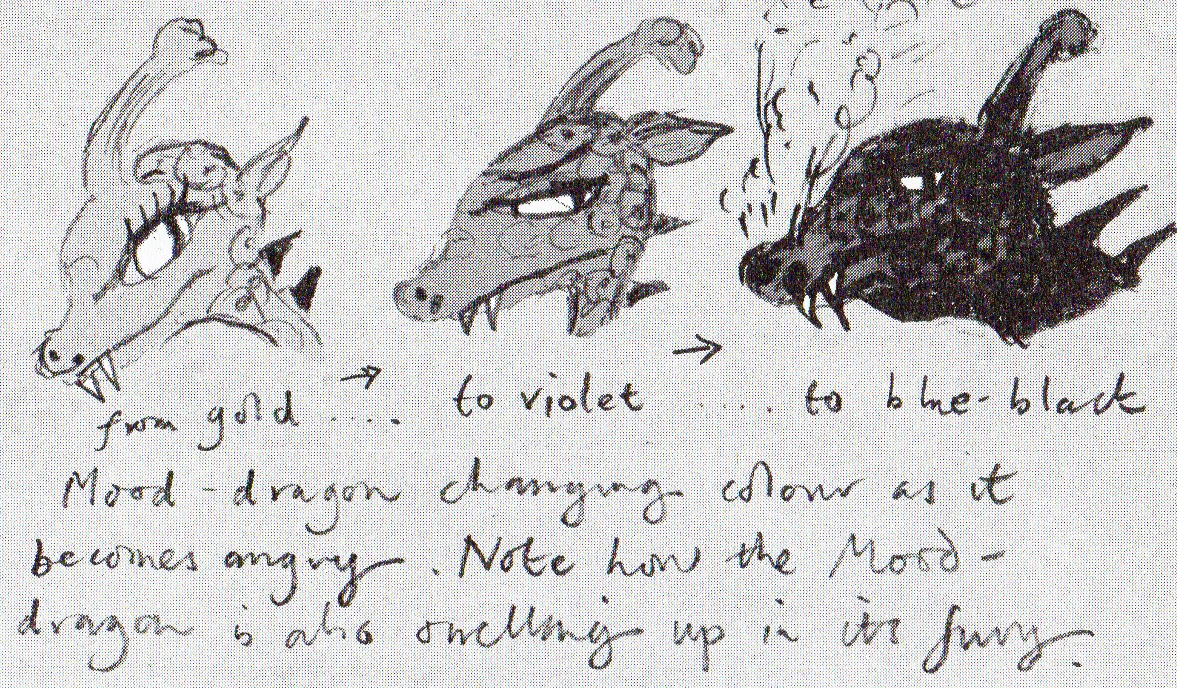 from gold .... to violet .... to blue-black
Mood-dragon changing colour as it
becomes angry. Note how the Mood-
dragon is also swelling up in its fury.